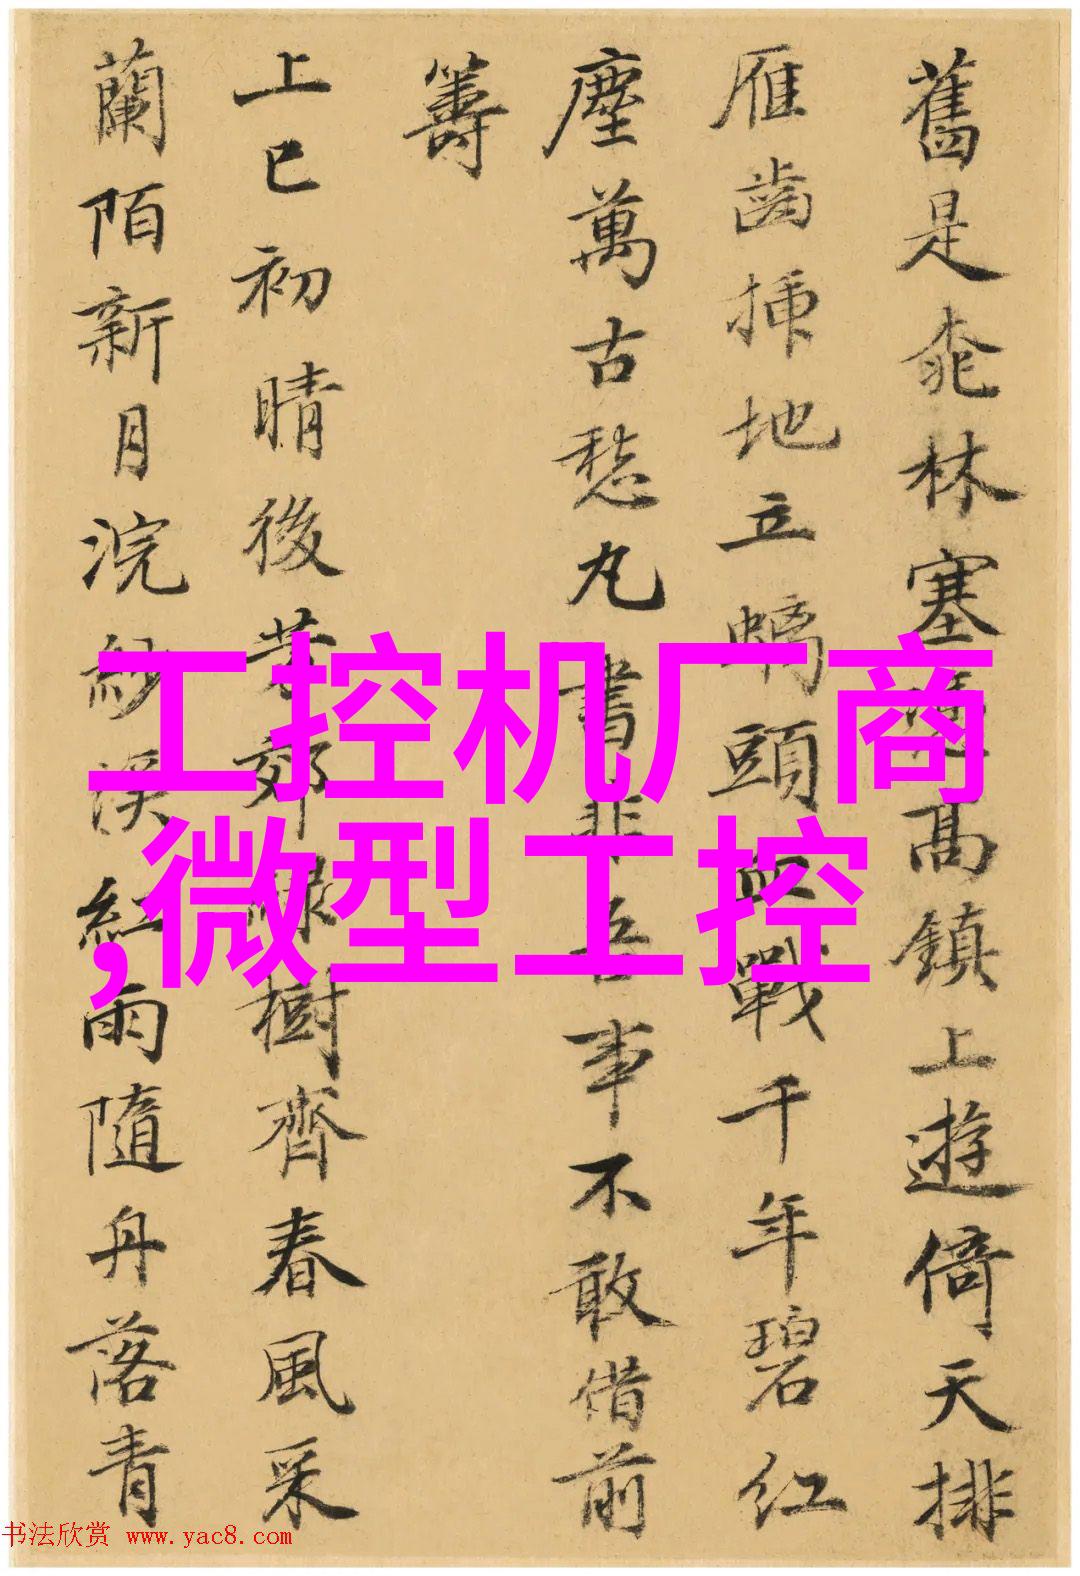 舊是桃林塞高鎮上遊倚天排
雁齒插地立螭頭血戰千年碧紅
塵萬古愁丸書非吾事不敢借前
籌
上巳初晴後芳郊綠樹齊春風采
蘭陌新月浣紗溪紅雨隨舟落青
工控机厂商
,微型工控
书法欣赏 www.yac8.com